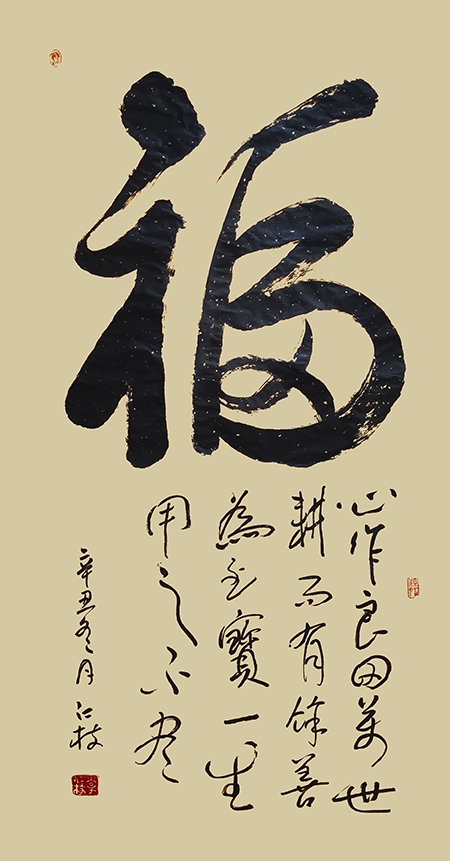 福
心作良田萬世
耕而有餘善
為至寶一生
用之不尽
辛丑冬月仁枝